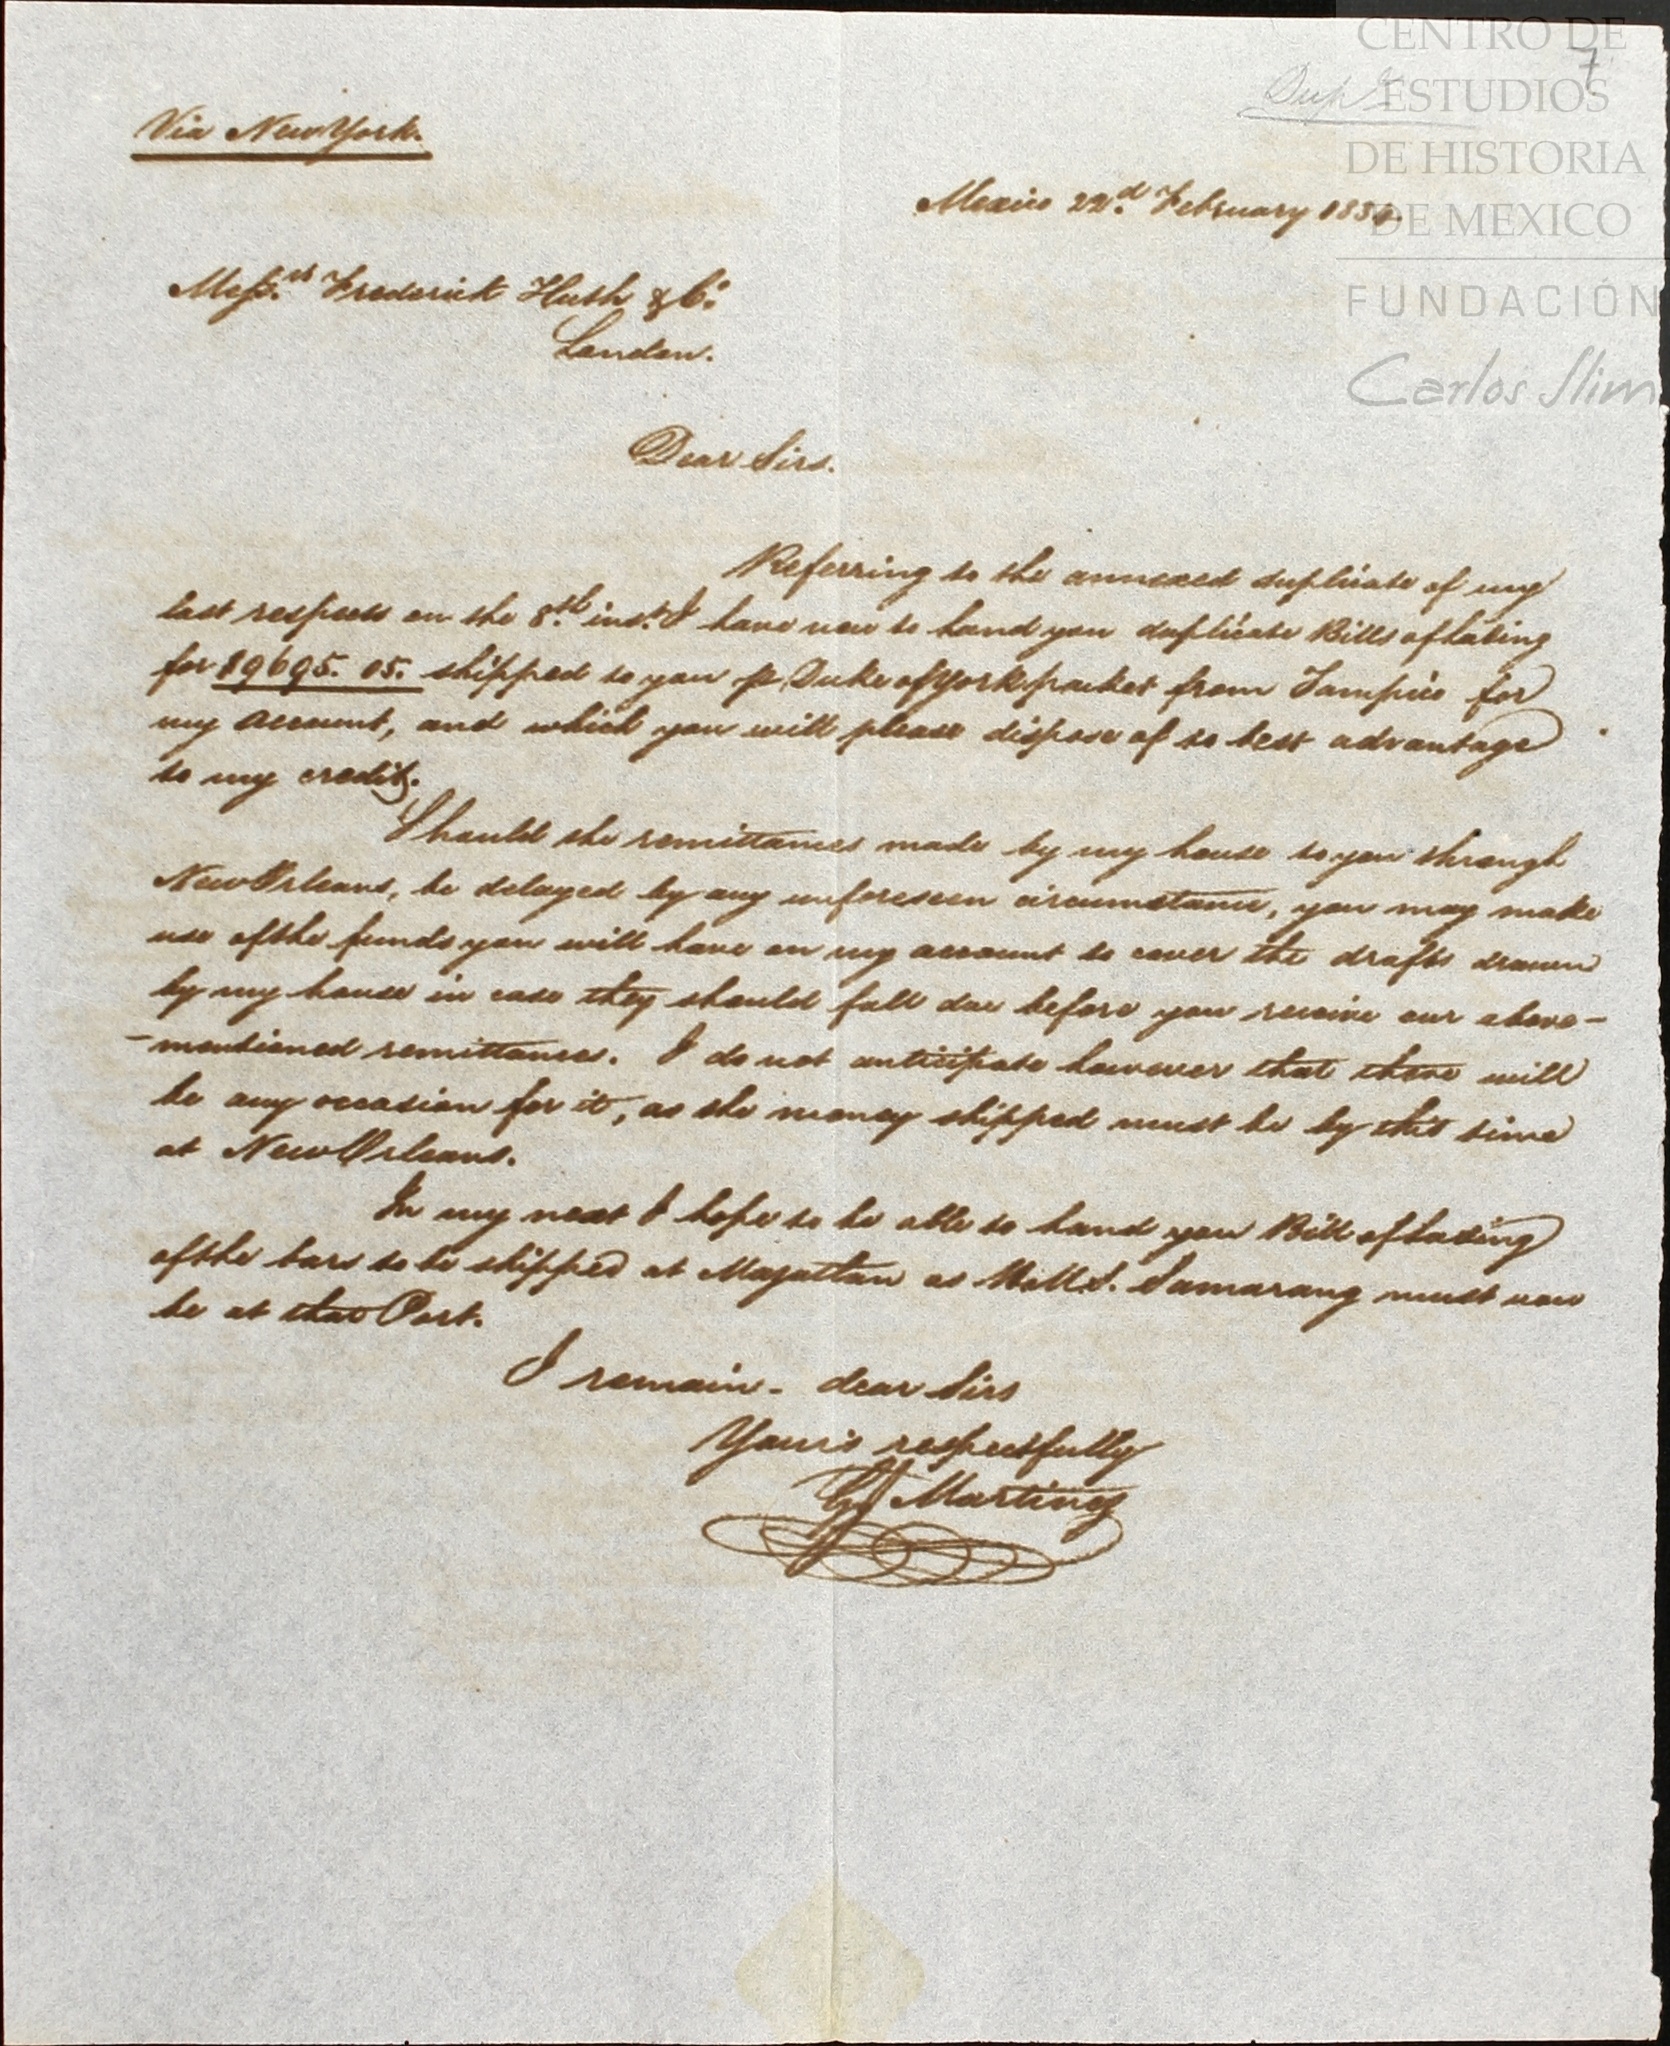 CENTRO DE
7
ESTUDIOS
DE HISTORIA
DE MEXICO
FUNDACIÓN
Carlos Slim
Via New York.
Mexico 22.d February 1834.
Mess.rs Frederick Huth & Co.
London.
Dear Sirs.
Referring to the annexed duplicate of my
last respects on the 8.th inst. I have now to hand you duplicate Bills of lading
for $9695. 05. shipped to you p Duke of York packet from Tampico for
my account, and which you will please dispose of to best advantage
to my credit.
Should the remittances made by my house to you through
New Orleans, be delayed by any unforeseen circumstance, you may make
use of the funds you will have on my account to cover the drafts drawn
by my house in case they should fall due before you receive our above-
-mentioned remittances. I do not anticipate however that there will
be any occasion for it, as the money shipped must be by this time
at New Orleans.
In my next I hope to be able to hand you Bill of lading
of the bars to be shipped at Mazattan as H.M.S. Samarang must now
be at that Port.
I remain - dear Sirs
Your's respectfully
Martinez